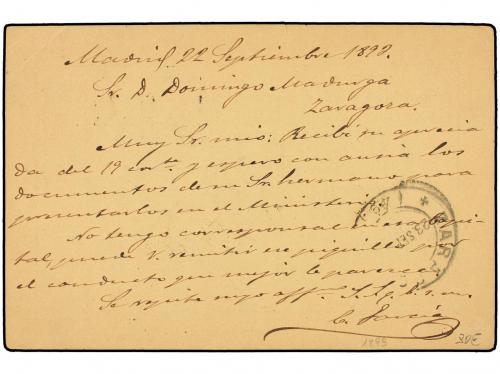 Madrid 22 Septiembre 1892.
Sr. D. Domingo Madurga
Zaragoza.
Muy Sr. mio: Recibí su aprecia
da del 19 cnte y espero con ansia los
documentos de su Sr. hermano para
presentarlos en el Ministerio.
No tengo corresponsal en esa capi
tal, puede V. remitir el piquillo por
el conducto que mejor le parezca.
Se repite suyo affmo. S. S. q. b. s. m.
C. García
ZAR
23 SEP
1893